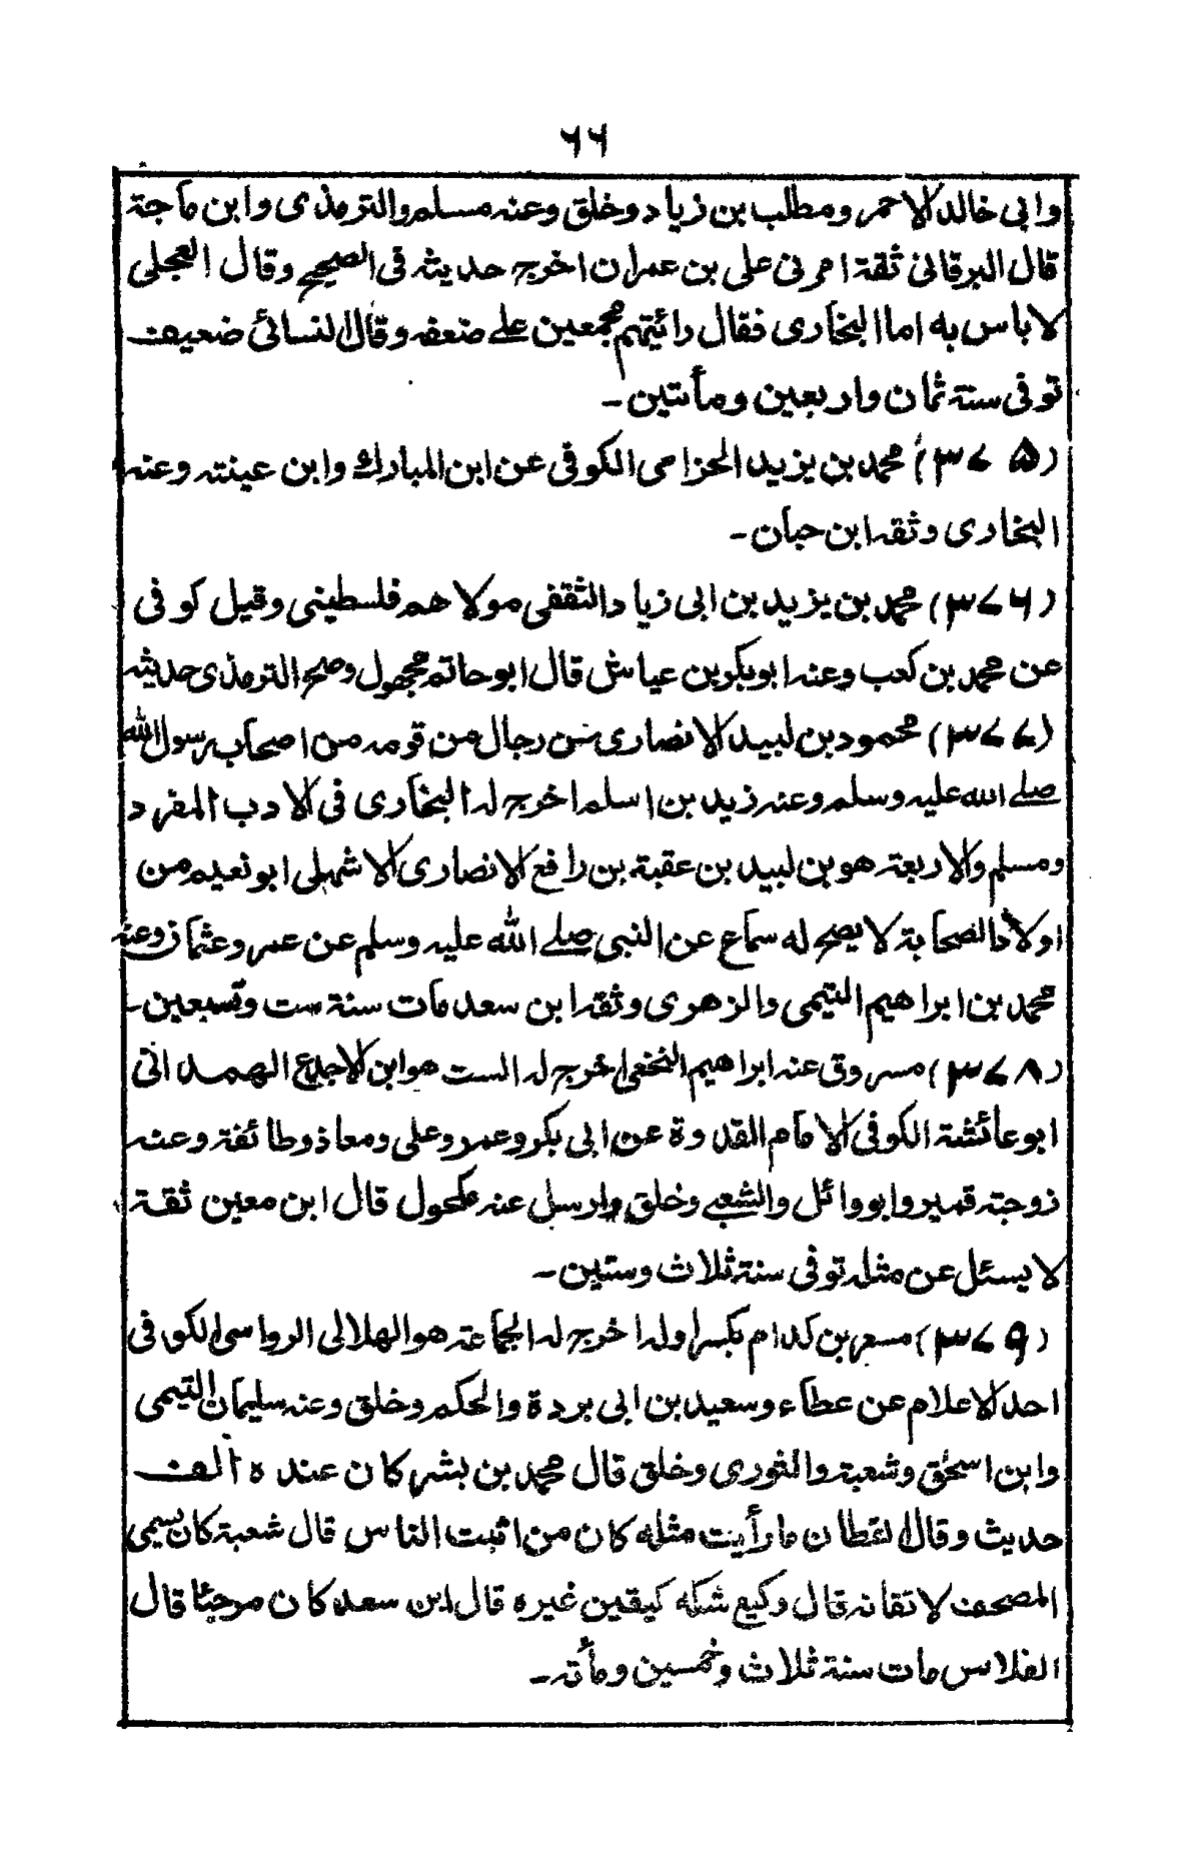 ٦٦
وابى خالد الاحمر ومطلب بن زياد وخلق وعنه مسلم والترمذى وابن ماجة
قال البرقانى ثقة امرنى على بن عمران اخرج حديثه فى الصحيح وقال العجلى
لا باس به اما البخارى فقال رائيتهم مجمعين على ضعفه وقال النسائى ضعيف
توفى سنة ثمان واربعين ومأتين ـ
(٣٧٥) محمد بن يزيد الحزامى الكوفى عن ابن المبارك وابن عينته وعنه
البخارى وثقه ابن حبان ـ
(٣٧٦) محمد بن يزيد بن ابى زياد الثقفى مولاهم فلسطينى وقيل كوفى
عن محمد بن كعب وعنه ابو بكر بن عياش قال ابو حاتم مجهول وصحح الترمذى حديثه
(٣٧٧) محمود بن لبيد الانصارى عن رجال من قومه من اصحاب رسول الله
صلى الله عليه وسلم وعنه زيد بن اسلم اخرج له البخارى فى الادب المفرد
ومسلم والاربعة هو بن لبيد بن عقبة بن رافع الانصارى الاشهلى ابو نعيم من
اولاد الصحابة لا يصح له سماع عن النبى صلى الله عليه وسلم عن عمر وعثمان وعنه
محمد بن ابراهيم التيمى والزهرى وثقه ابن سعد مات سنة ست وتسعين ـ
(٣٧٨) مسروق عنه ابراهيم النخعى اخرج له الست هو ابن الاجدع الهمدانى
ابو عائشة الكوفى الامام القدوة عن ابى بكر وعمر وعلى ومعاذ وطائفة وعنه
زوجته قمير وابو وائل والشعبى وخلق وارسل عنه مكحول قال ابن معين ثقة
لا يسئل عن مثله توفى سنة ثلاث وستين ـ
(٣٧٩) مسعر بن كدام بكسر اوله اخرج له الجماعة هو الهلالى الرواسى الكوفى
احد الاعلام عن عطاء وسعيد بن ابى بردة والحكم وخلق وعنه سليمان التيمى
وابن اسحٰق وشعبة والثورى وخلق قال محمد بن بشر كان عنده الف
حديث وقال القطان ما رأيت مثله كان من اثبت الناس قال شعبة كان يسمى
المصحف لاتقانه قال وكيع شكه كيقين غيره قال ابن سعد كان مرجئا قال
الفلاس مات سنة ثلاث وخمسين ومأته ـ